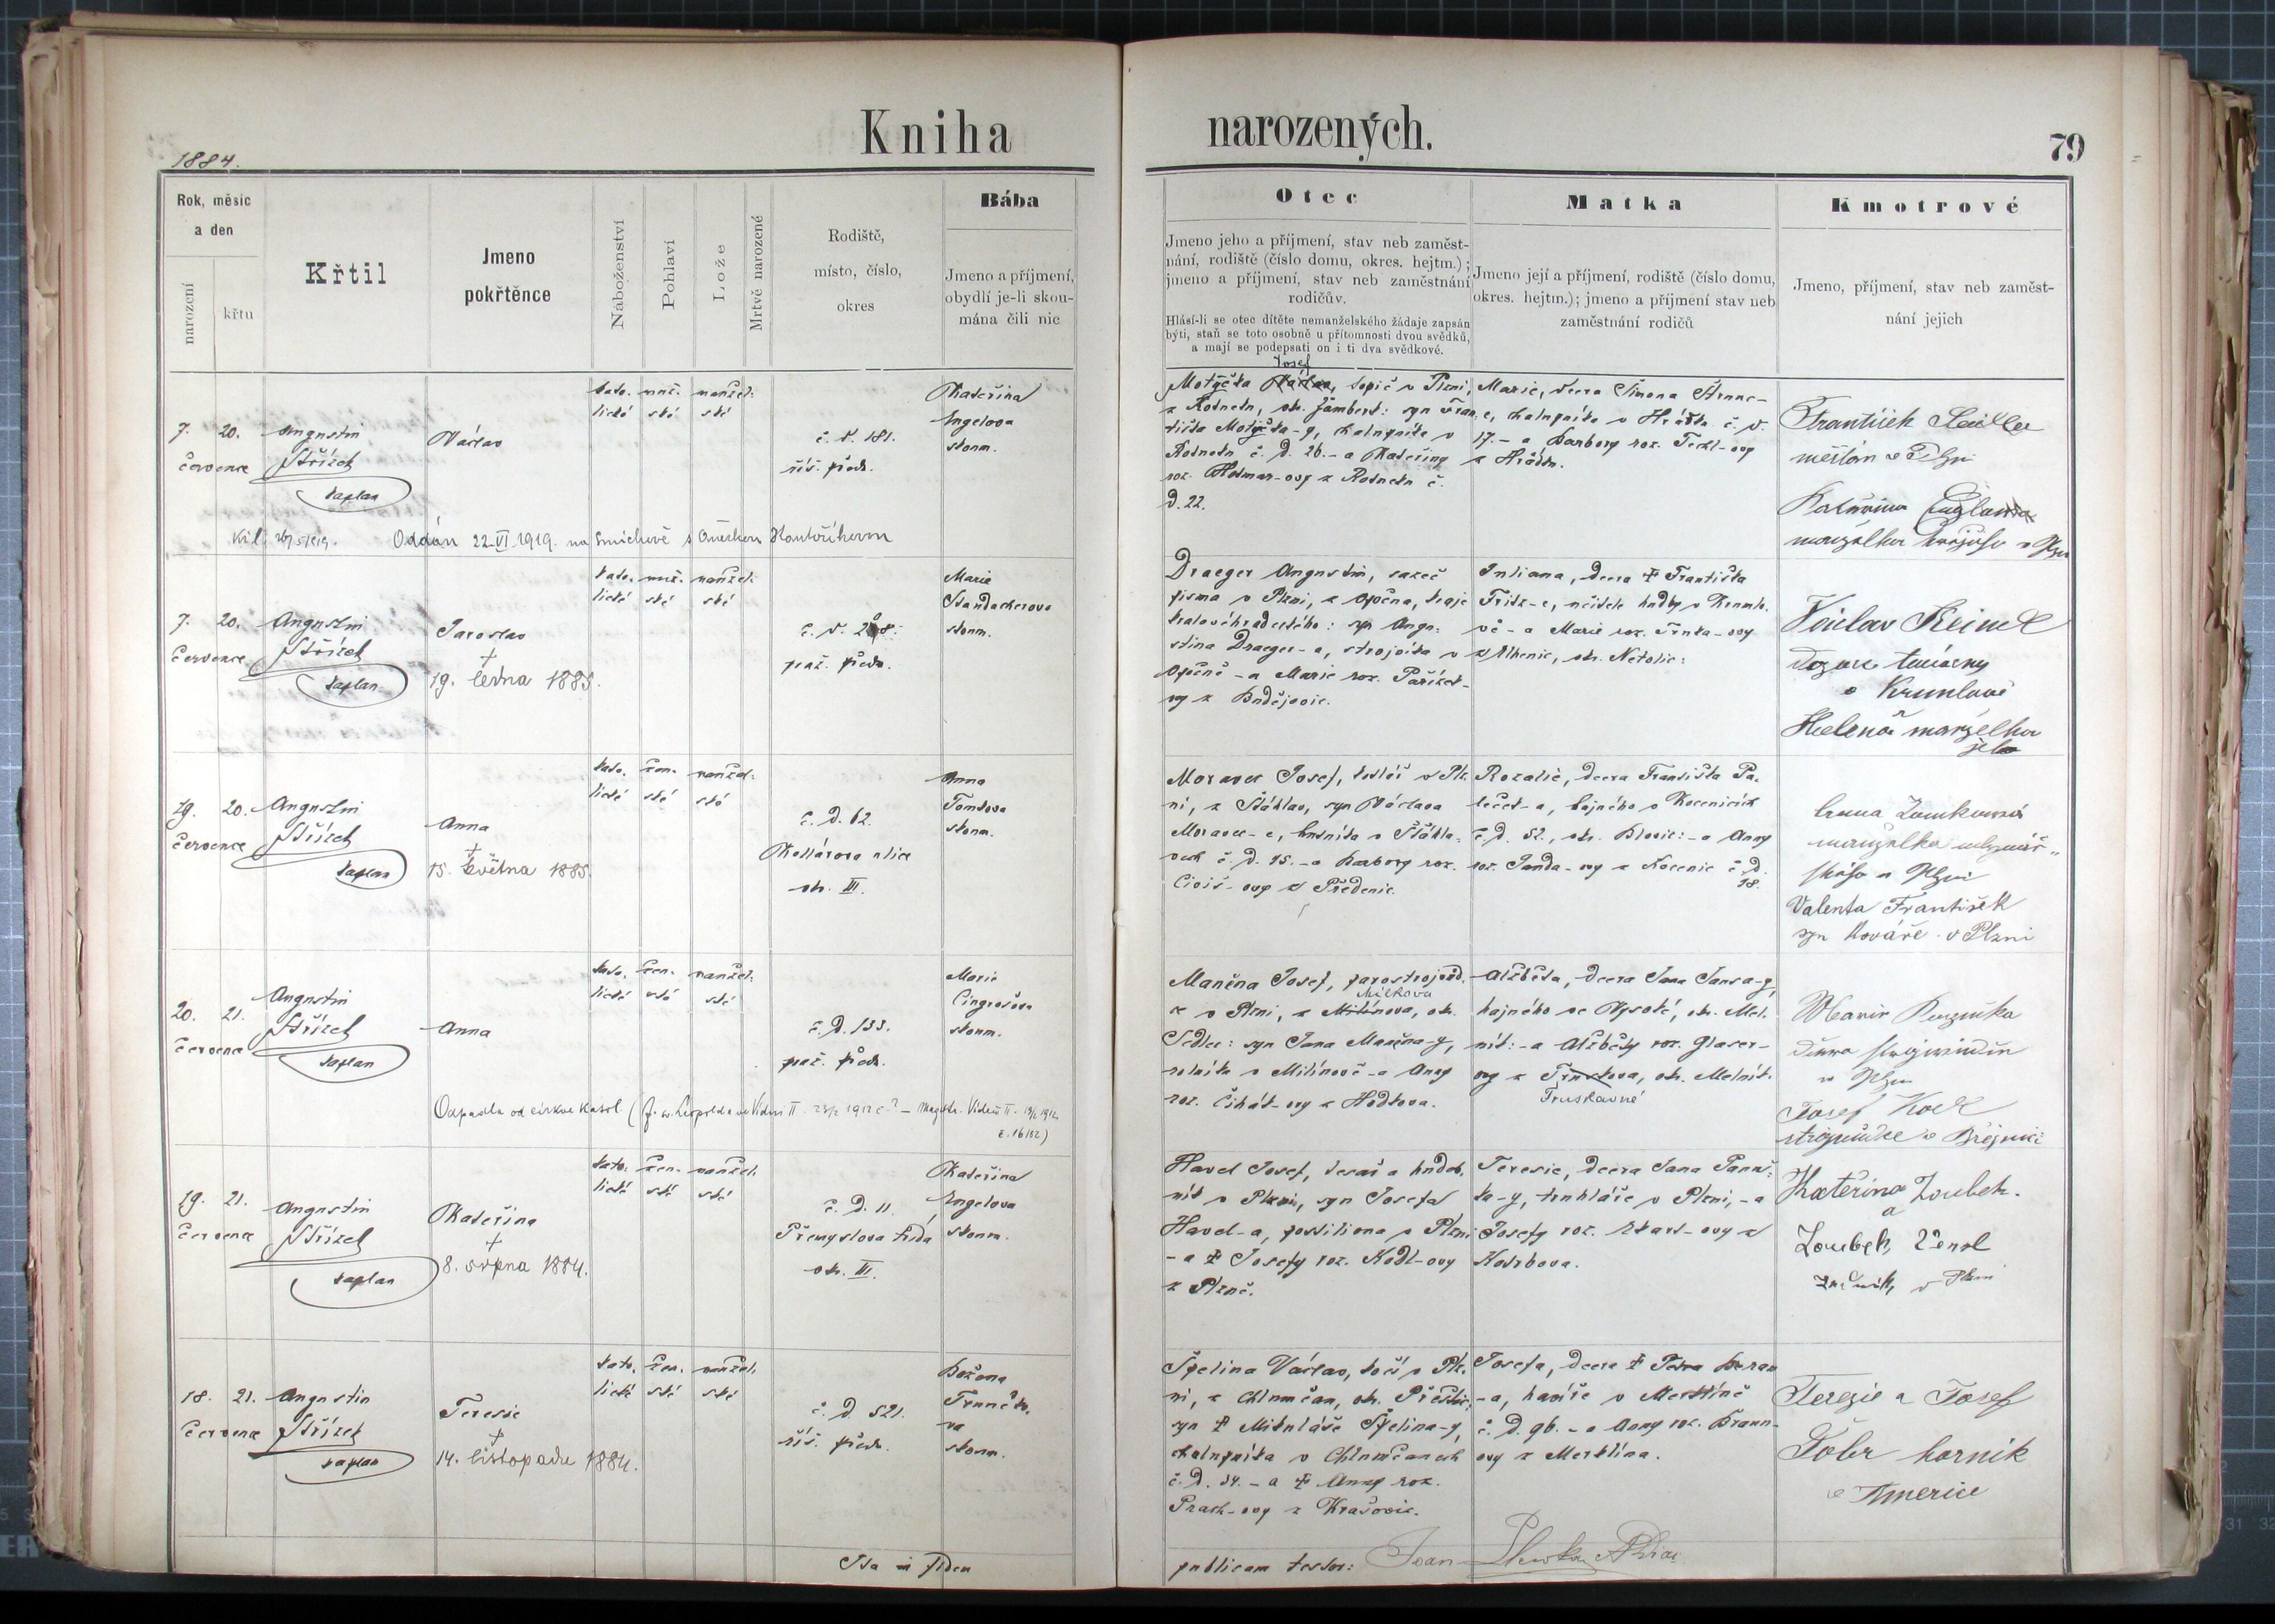 Kniha
narozených.
79
1884.
Rok, měsíc
a den
narození
křtu
Křtil
Jmeno
pokřtěnce
Náboženství
Pohlaví
Lože
Mrtvě narozené
Rodiště,
místo, číslo,
okres
Bába
Jmeno a příjmení,
obydlí je-li skou-
mána čili nic
Otec
Jmeno jeho a příjmení, stav neb zaměst-
nání, rodiště (číslo domu, okres. hejtm.);
jmeno a příjmení, stav neb zaměstnání
rodičův.
Hlásí-li se otec dítěte nemanželského žádaje zapsán
býti, staň se toto osobně u přítomnosti dvou svědků,
a mají se podepsati on i ti dva svědkové.
Matka
Jmeno její a příjmení, rodiště (číslo domu,
okres. hejtm.); jmeno a příjmení stav neb
zaměstnání rodičů
Kmotrové
Jmeno, příjmení, stav neb zaměst-
nání jejich
7. 20.
července
Augustin
Střízek
kaplan
Václav
kato-
lické
muž-
ské
manžel-
ské
č. d. 181.
říš. předm.
Kateřina
Engelova
skoum.
Josef
Motyčka Václav, topič v Plzni,
z Rotnetn, okr. Žamberk: syn Fran-
tiška Motyčka-y, chalupníka v
Rotnetn č. d. 26. - a Kateřiny
roz. Hotmar-ovy z Rotnetn č.
d. 22.
Marie, dcera Šimona
e, chalupníka v Hrádku č. d.
17. - a Barbory roz.
z Hrádku.
František
měšťan v Plzni
Kateřina
manželka v Plzni
Oddán 22.VI.1919. na Smíchově s Anežkou
7. 20.
července
Augustin
Střízek
kaplan
Jaroslav
†
19. ledna 1885.
kato-
lické
muž-
ské
manžel-
ské
praž. předm.
Marie
Standacherova
skoum.
Draeger Augustin, sazeč
písma v Plzni, z Opočna, kraje
královéhradeckého: syn Augu-
stina Draeger-a, strojníka v
Opočně - a Marie roz. Pařízek-
ovy z Budějovic.
Juliana, dcera † Františka
Fritz-e, učitele hudby v Krumlo-
vě - a Marie roz. Trnka-ovy
z Elhenic, okr. Netolic:
Václav Reinel
dozorce továrny
v Krumlově
Helena manželka
jeho
19. 20.
července
Augustin
Střízek
kaplan
Anna
†
15. května 1885.
kato-
lické
žen-
ské
manžel-
ské
č. d. 62.
Kollárova ulice
okr. III.
Anna
Tomkova
skoum.
Moravec Josef, kotlář v Plz-
ni, z Štáhlav, syn Václava
Moravec-e, hutníka v Štáhla-
vech č. d. 15. - a Barbory roz.
Civiš-ovy z Předenic.
Rozalie, dcera Františka Pa-
leček-a, hajného v Kocenicích
č. d. 52., okr. Blovic: - a Anny
roz. Janda-ovy z Kocenic č. d.
18.
Anna Tomkova
manželka
v Plzni
Valenta František
syn kováře v Plzni
20. 21.
července
Augustin
Střízek
kaplan
Anna
kato-
lické
žen-
ské
manžel-
ské
č. d. 133.
praž. předm.
Marie
Cingrošova
skoum.
Maněna Josef, parostrojvůd-
ce v Plzni, z Milínova, okr.
Milkova
Sedlec: syn Jana Maněna-y,
rolníka v Milínově - a Anny
roz. Čihák-ovy z Hodkova.
Alžběta, dcera Jana Jansa-y,
hajného ve Vysoké, okr. Měl-
ník: - a Alžběty roz. Glaser-
ovy z okr. Mělník.
Truskavné
Marie Růžička
v Plzni
Josef Kock
Odpadla od církve katol. (f. sv. Leopolda ve Vídni II 23/2 1912 č. ? - Magistr. Vídeň II. 19/2 1912
č. 16182)
19. 21.
července
Augustin
Střízek
kaplan
Kateřina
†
8. srpna 1884.
kato-
lické
žen-
ské
manžel-
ské
č. d. 11.
Přemyslova třída
okr. III.
Kateřina
Engelova
skoum.
Havel Josef, tesař a hudeb-
ník v Plzni, syn Josefa
Havel-a, postiliona v Plzni
- a † Josefy roz. Kodl-ovy
z Plzně.
Teresie, dcera Jana Panuš-
ka-y, truhláře v Plzni, - a
Josefy roz. Ekart-ovy z
Kotrbova.
Kateřina Zoubek.
a
Zoubek Čeněk
v Plzni
18. 21.
července
Augustin
Střízek
kaplan
Teresie
†
14. listopadu 1884.
kato-
lické
žen-
ské
manžel-
ské
č. d. 521.
říš. předm.
Božena
Trunečko-
va
skoum.
Špelina Václav, kočí v Plz-
ni, z Chlumčan, okr. Přeštic,
syn † Mikuláše Špelina-y,
chalupníka v Chlumčanech
č. d. 34. - a † Anny roz.
Prach-ovy z Krašovic.
Josefa, dcera † Petra Beran
-a, havíře v Merklíně
č. d. 96. - a Anny roz. Braun-
ovy z Merklína.
Terezie a Josef
Tobr horník
v Tmerice
Ita in fidem
publicam testor: